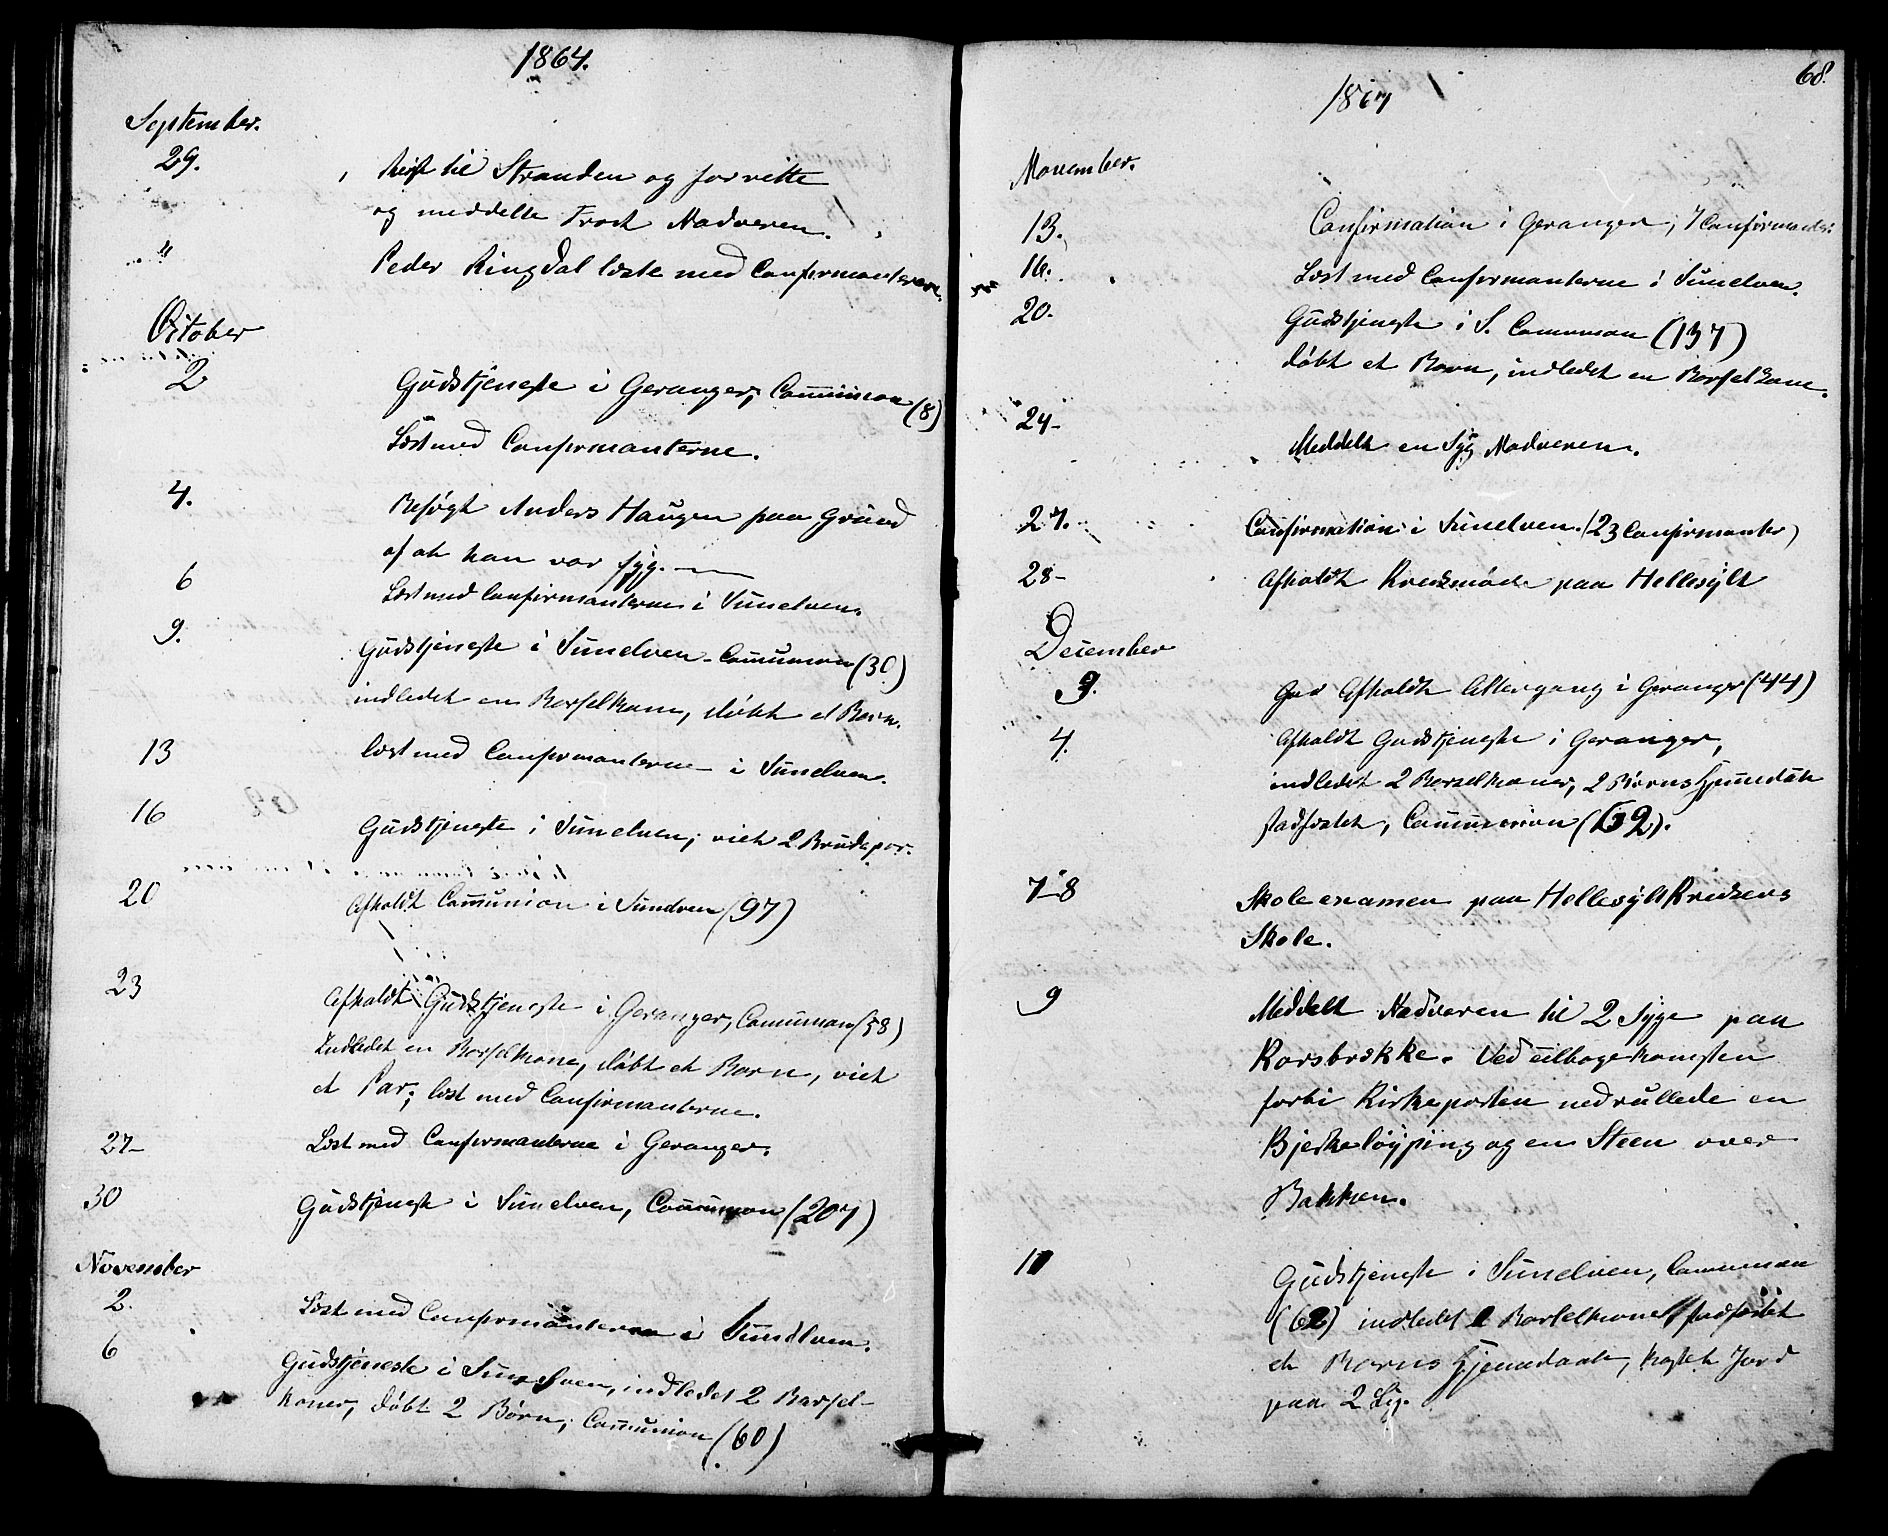 1864.
September.
29. til Stranden og forrette
og meddelte Trost Nadveren.
" Peder Ringdal læste med Confirmanterne.
October
2 Gudstjeneste i Geranger, Communion (8)
Læst med Confirmanterne.
4. Besøgt Anders Haugen paa Grund
af at han var syg.
6 Læst med Confirmanterne i Sunelven.
9. Gudstjeneste i Sunelven. Communion (30)
indledet en Barselkone, døbt et Barn.
13 Læst med Confirmanterne i Sunelven.
16 Gudstjeneste i Sunelven; viet 2 Brudepar.
20 Afholdt Communion i Sunelven (97)
23 Afholdt Gudstjeneste i Geranger, Communion (58)
Indledet en Barselkone, døbt et Barn, viet
et Par; læst med Confirmanterne.
27- Læst med Confirmanterne i Geranger.
30 Gudstjeneste i Sunelven, Communion (207)
November
2. Læst med Confirmanterne i Sunelven.
6 Gudstjeneste i Sunelven, indledet 2 Barsel-
koner, døbt 2 Børn; Communion (60)
68.
1864
November.
13. Confirmation i Geranger, 7 Confirmander
16. Læst med Confirmanterne i Sunelven.
20. Gudstjeneste i S. Communion (137)
døbt et Barn, indledet en Barselkone.
24- Meddelt en Syg Nadveren.
27. Confirmation i Sunelven. (23 Confirmanter)
28- Afholdt Kredsmøde paa Hellesylt
December
3. Afholdt Altergang i Geranger (44)
4. Afholdt Gudstjeneste i Geranger,
indledet 2 Barselkoner, 2 Børns Hjemmedåb
stadfæstet, Communion (52).
7-8 Skoleexamen paa Hellesylt Kredsens
Skole.
9 Meddelt Nadveren til 2 Syge paa
Korsbrække. Ved tilbagekomsten
forbi Kirkeporten nedrullede en
Bjerkeløyping og en Steen over
Bakken.
11 Gudstjeneste i Sunelven, Communion
(62) indledet 2 Barselkoner, stadfæstet
et Barns Hjemmedaab, kastet Jord
paa 2 Lig.